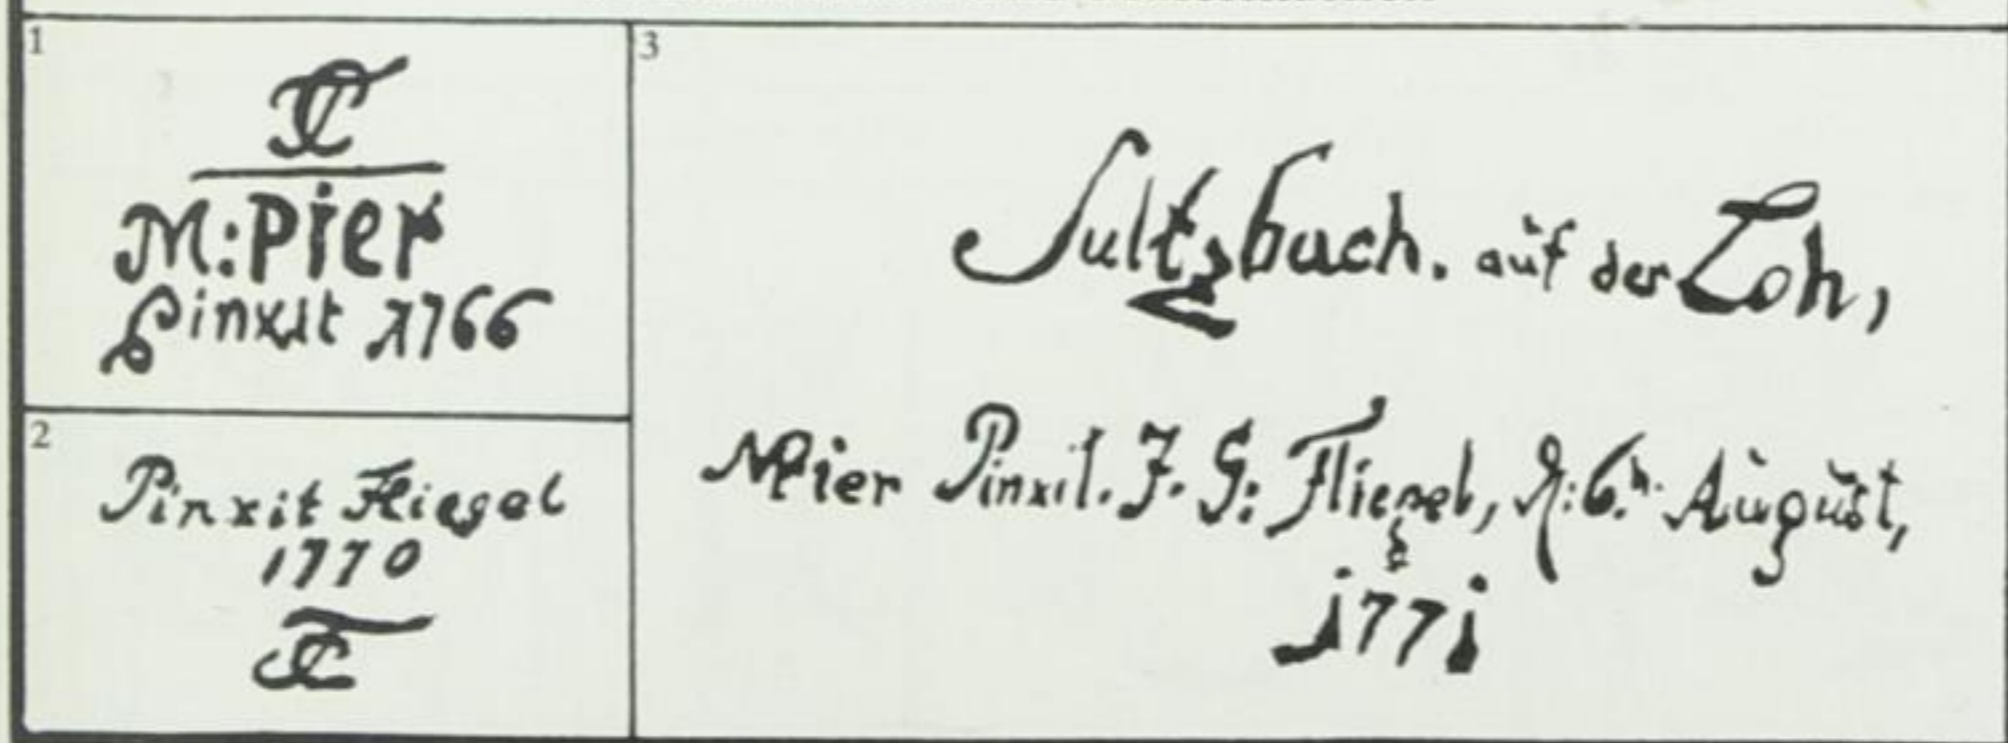 1
CT
M: Pier
Pinxit 1766
2
Pinxit Fliegel
1770
CT
3
Sultzbach. auf der Loh,
MPier Pinxit. J. G: Fliegel, d: 6.h. August,
1771